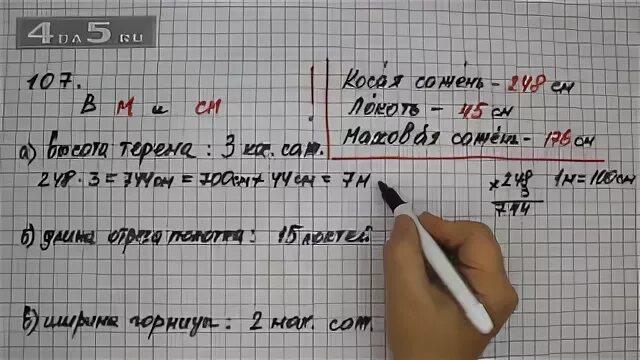 4 DA 5 RU
107.
В М и СМ
Коса́я саже́нь - 248 см
Ло́коть - 45 см
Махова́я саже́нь - 176 см
а) Высота терема : 3 кос. саж.
248 · 3 = 744 см = 700 см + 44 см = 7 м
× 248
3
744
1 м = 100 см
б) длина отреза полотна : 15 локтей
в) ширина горницы : 2 мах. саж.